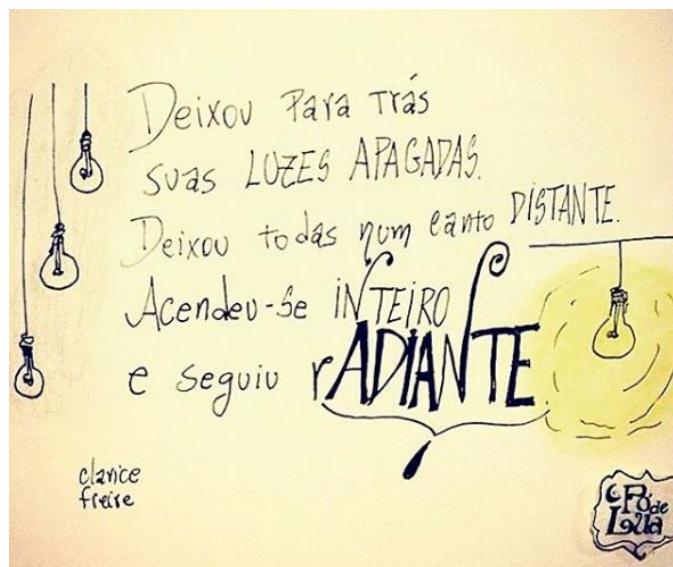 Deixou Para Trás
suas LUZES APAGADAS.
Deixou todas num canto DISTANTE.
Acendeu-se INTEIRO
e seguiu rADIANTE.
clarice
freire
Pó de
Lua